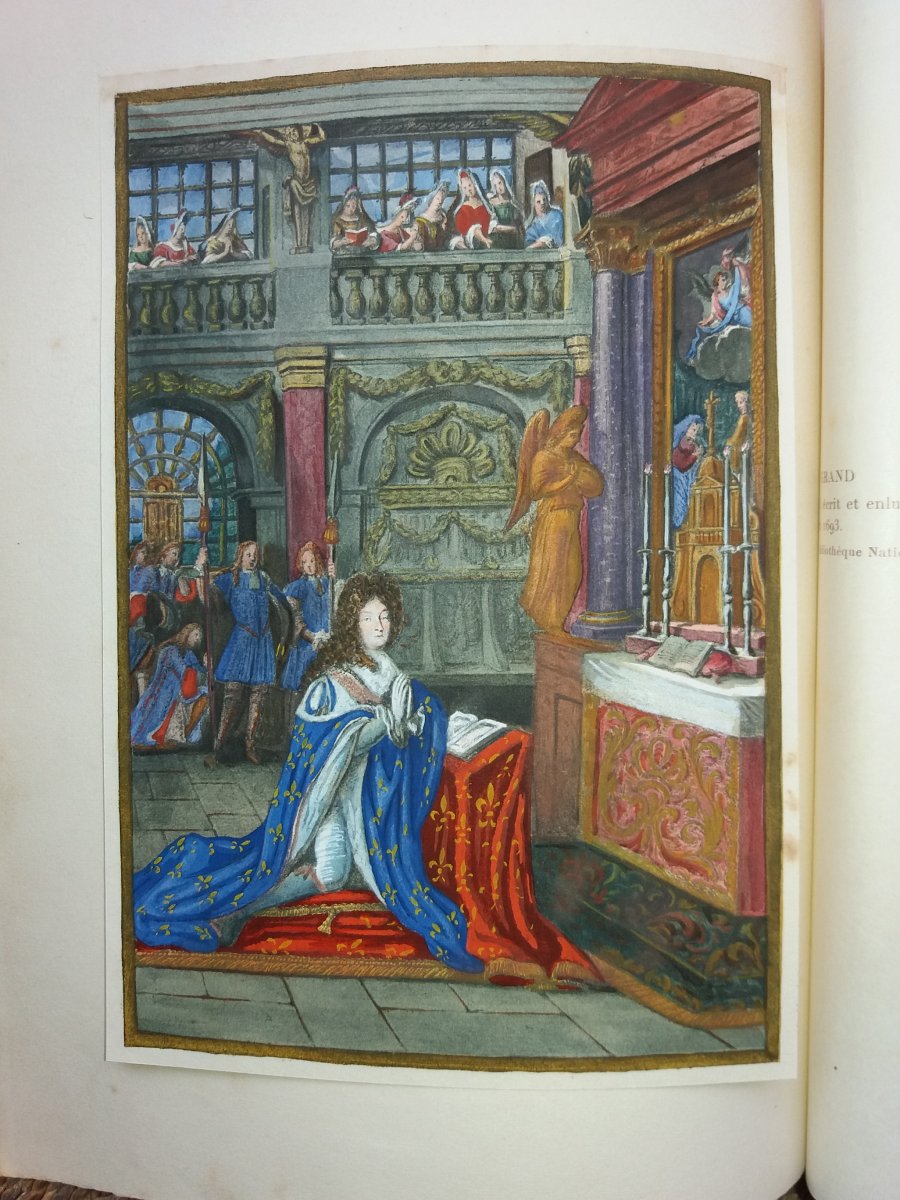 GRAND
écrit et enlu
1693.
bliothèque Natio